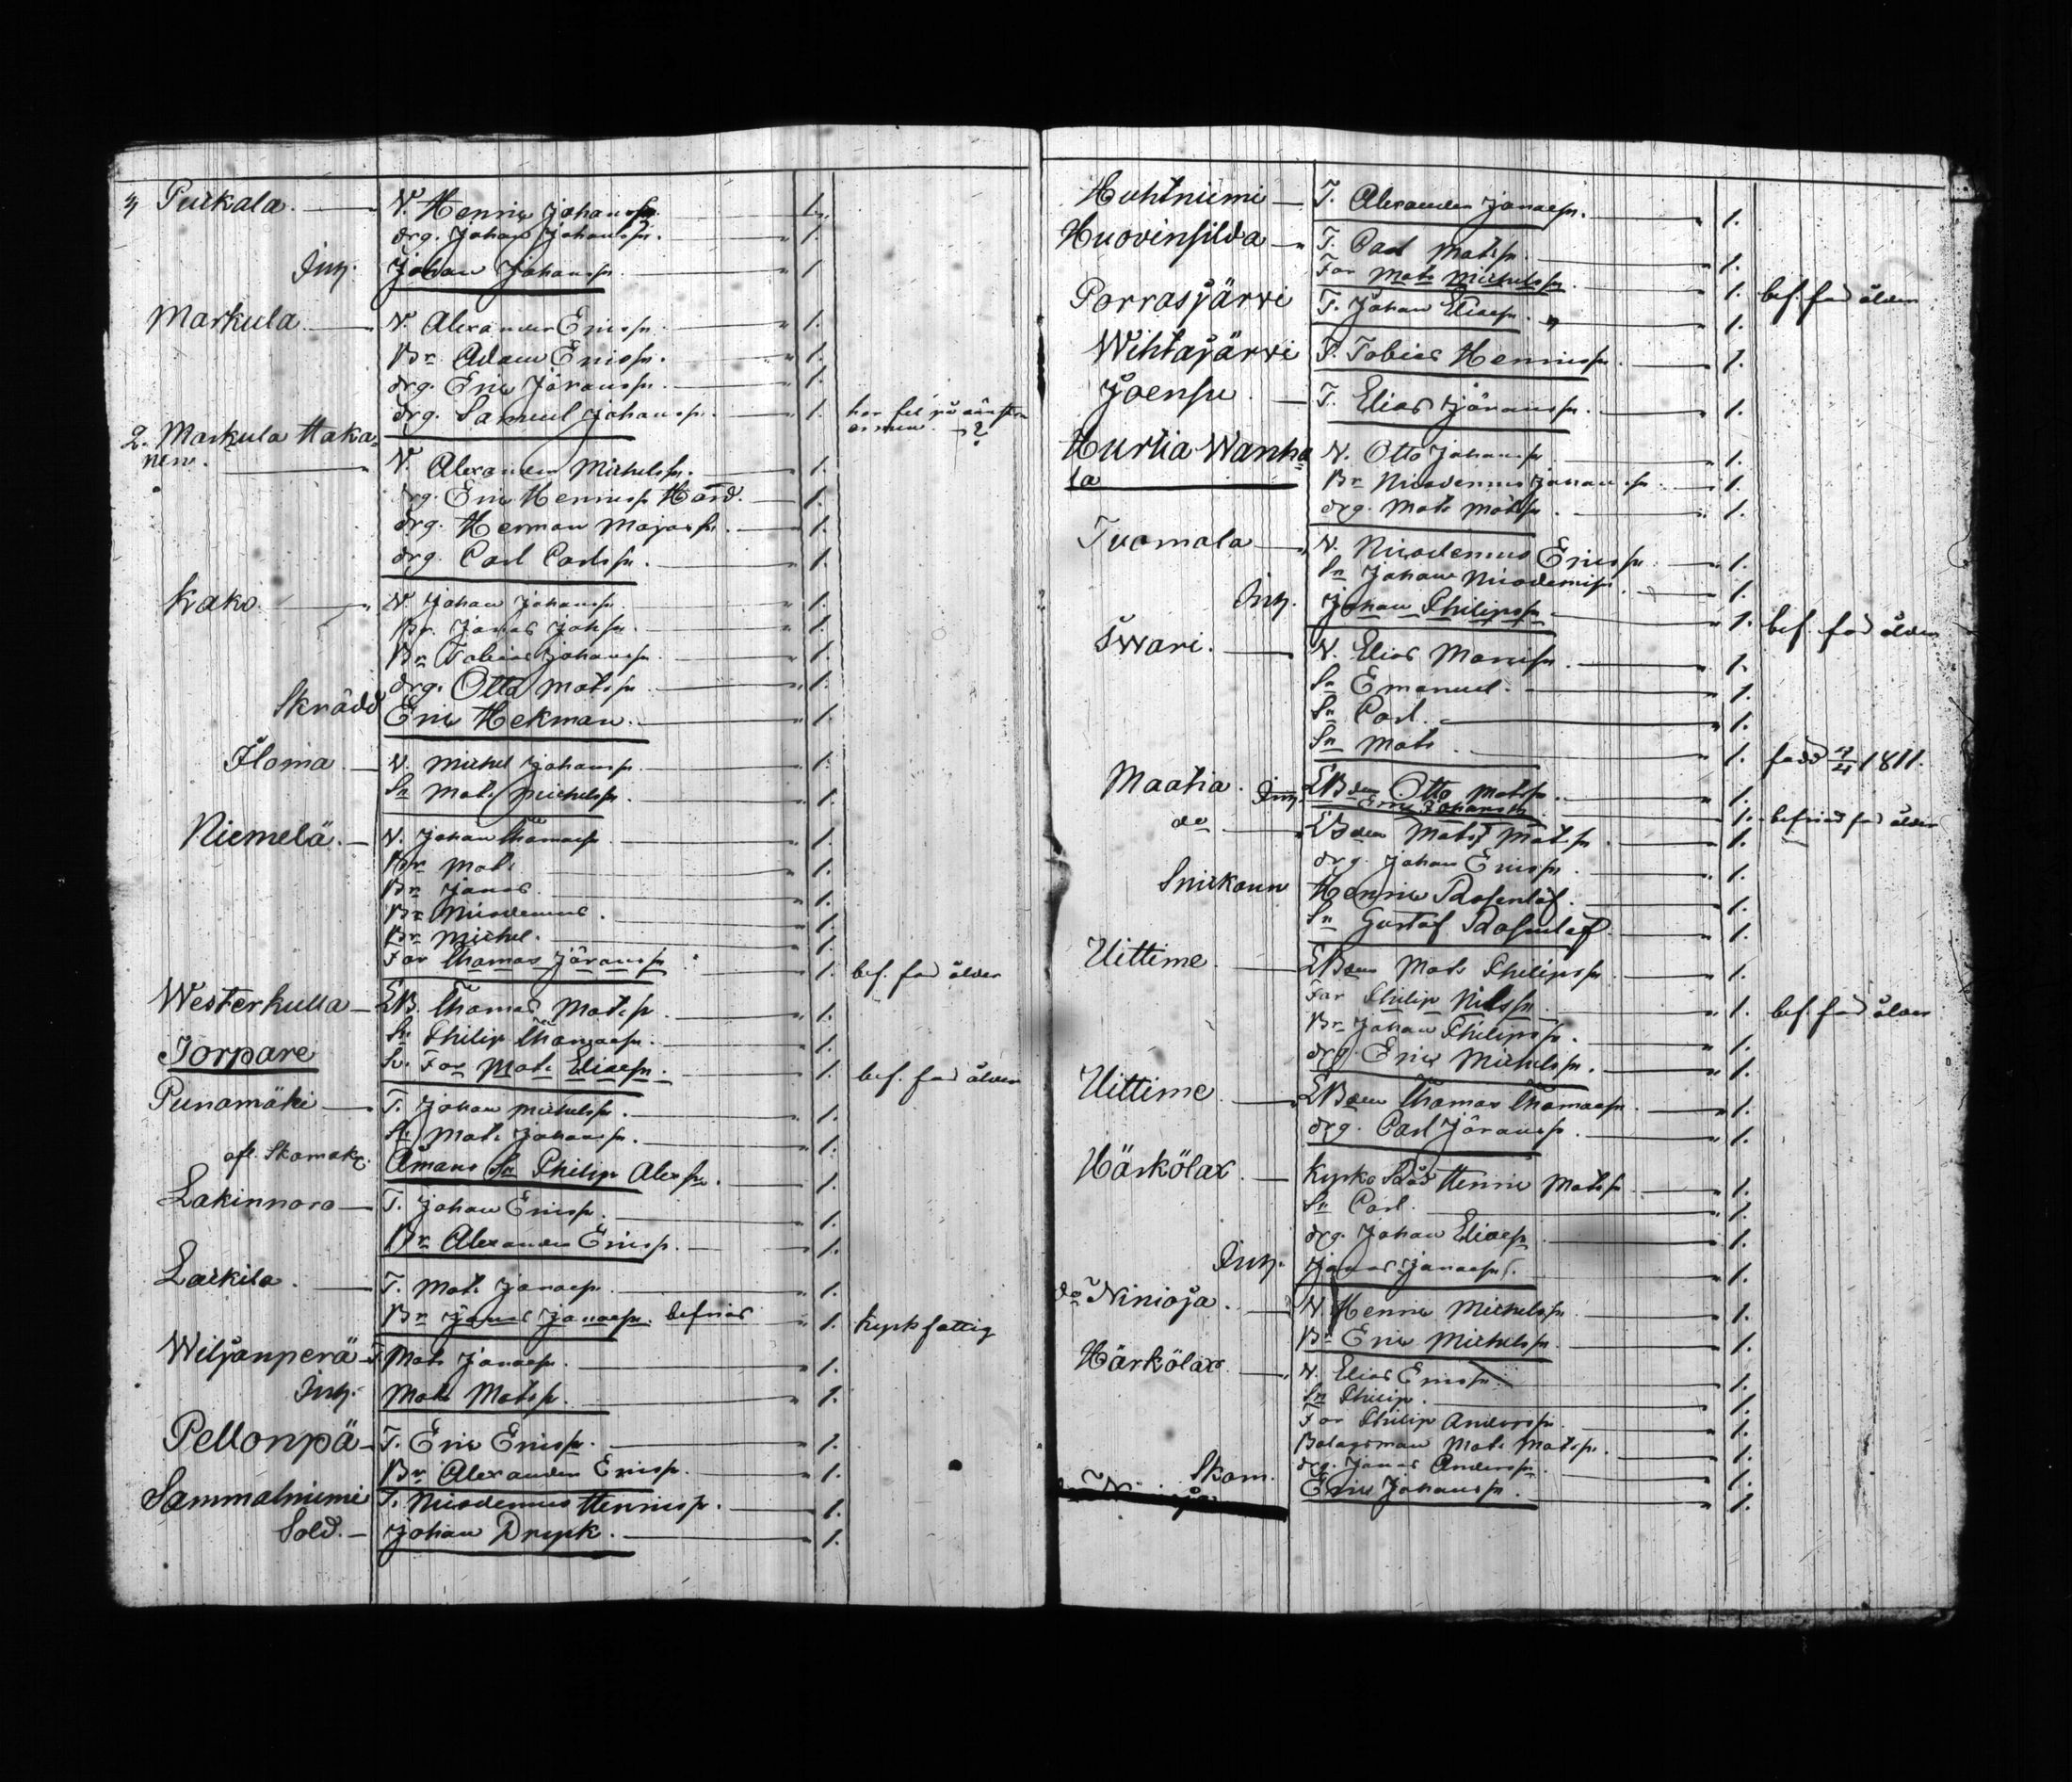 Puikala. N. Henric Johanssn. 1.
drg. Johan Johanssn. 1.
Inh. Johan Johanssn. 1
Markula. N. Alexander Ericssn. 1.
Br. Adam Ericssn. 1.
drg. Eric Jöranssn. 1.
drg. Samuel Johanssn. 1. har fel på
armen. ?
2. Markula Haka-
nen. N. Alexander Michelssn. 1.
drg. Eric Henricssn Hård. 1.
drg. Herman Majassn. 1.
drg. Carl Carlssn. 1.
Kako. N. Johan Johanssn. 1.
Br. Jonas Johssn. 1.
Br Tobias Johanssn. 1.
drg. Otto Matssn. 1.
Skrädd Eric Hekman. 1.
Iloma. N. Michel Johanssn. 1.
Sn Mats Michelssn. 1.
Niemelä. N. Johan Thomassn. 1.
Br Mats 1.
Br Jonas. 1.
Br Nicodemus. 1.
Br Michel. 1.
Far Thomas Jöranssn. 1. bef. för ålder
Westerkulla EB. Thomas Matssn. 1.
Sn Philip Thomassn. 1.
Torpare Sv. Far Mats Eliassn. 1. bef. för ålder
Punamäki T. Johan Michelssn. 1.
Sn Mats Johanssn. 1.
afl. Skomak. Åmans Sn Philip Alexssn. 1.
Lakinnoro T. Johan Ericssn. 1.
Br Alexander Ericssn. 1.
Laikila. T. Mats Jonassn. 1.
Br Jonas Jonassn. befriad 1. Kyrkfattig
Wiljanperä T Mats Jonassn. 1.
Inh. Mats Matssn. 1.
Pellonpä T. Eric Ericssn. 1.
Br Alexander Ericssn. 1.
Sammalniemi T. Nicodemus Henricssn. 1.
Sold. Johan Drupk. 1.
Huhtniemi T. Alexander Jonassn. 1.
Huovinsilda T. Carl Matssn. 1.
Far Mats Michelssn. 1. bef. för ålder
Porrasjärvi T. Johan Eliassn. 1.
Wihtajärvi T. Tobias Henricssn. 1.
Joensu. T. Elias Jöranssn. 1.
Hurtia Wanha
la N. Otto Johanssn 1.
Br Nicodemus Johanssn. 1.
drg. Mats Matssn. 1.
Tuomala N. Nicodemus Ericssn. 1.
Sn Johan Nicodemissn. 1.
Inh. Johan Philipssn. 1. bef. för ålder
Iwari. N. Elias Mariæssn. 1.
Sn Emanuel. 1.
Sn Carl. 1.
Sn Mats. 1. född 1811.
Maatia. EBden Otto Matssn. 1.
Inh. Eric Johanssn 1. befriad för ålder
do EBden Mats Matssn. 1.
drg. Johan Ericssn. 1.
Snickaren Henric Rosenlöf. 1.
Sn Gustaf Rosenlöf. 1.
Uittime. EBden Mats Philipssn 1.
Far Philip Nilssn. 1. bef. för ålder
Br Johan Philipssn. 1.
drg. Eric Michelssn. 1.
Uittime. EBden Thomas Thomassn. 1.
drg. Carl Jöranssn. 1.
Härkölax. Kyrko Råd Henric Matssn 1.
Sn Carl. 1.
drg. Johan Eliassn 1.
Inh. Jonas Jonassn. 1.
do Ninioja. N Henric Michelssn 1.
Br Eric Michelssn. 1.
Härkölax. N. Elias Ericssn. 1.
Sn Philip. 1.
Far Philip Anderssn 1.
Bolagsman Mats Matssn. 1.
drg. Jonas Anderssn. 1.
Skom. Eric Johanssn. 1.